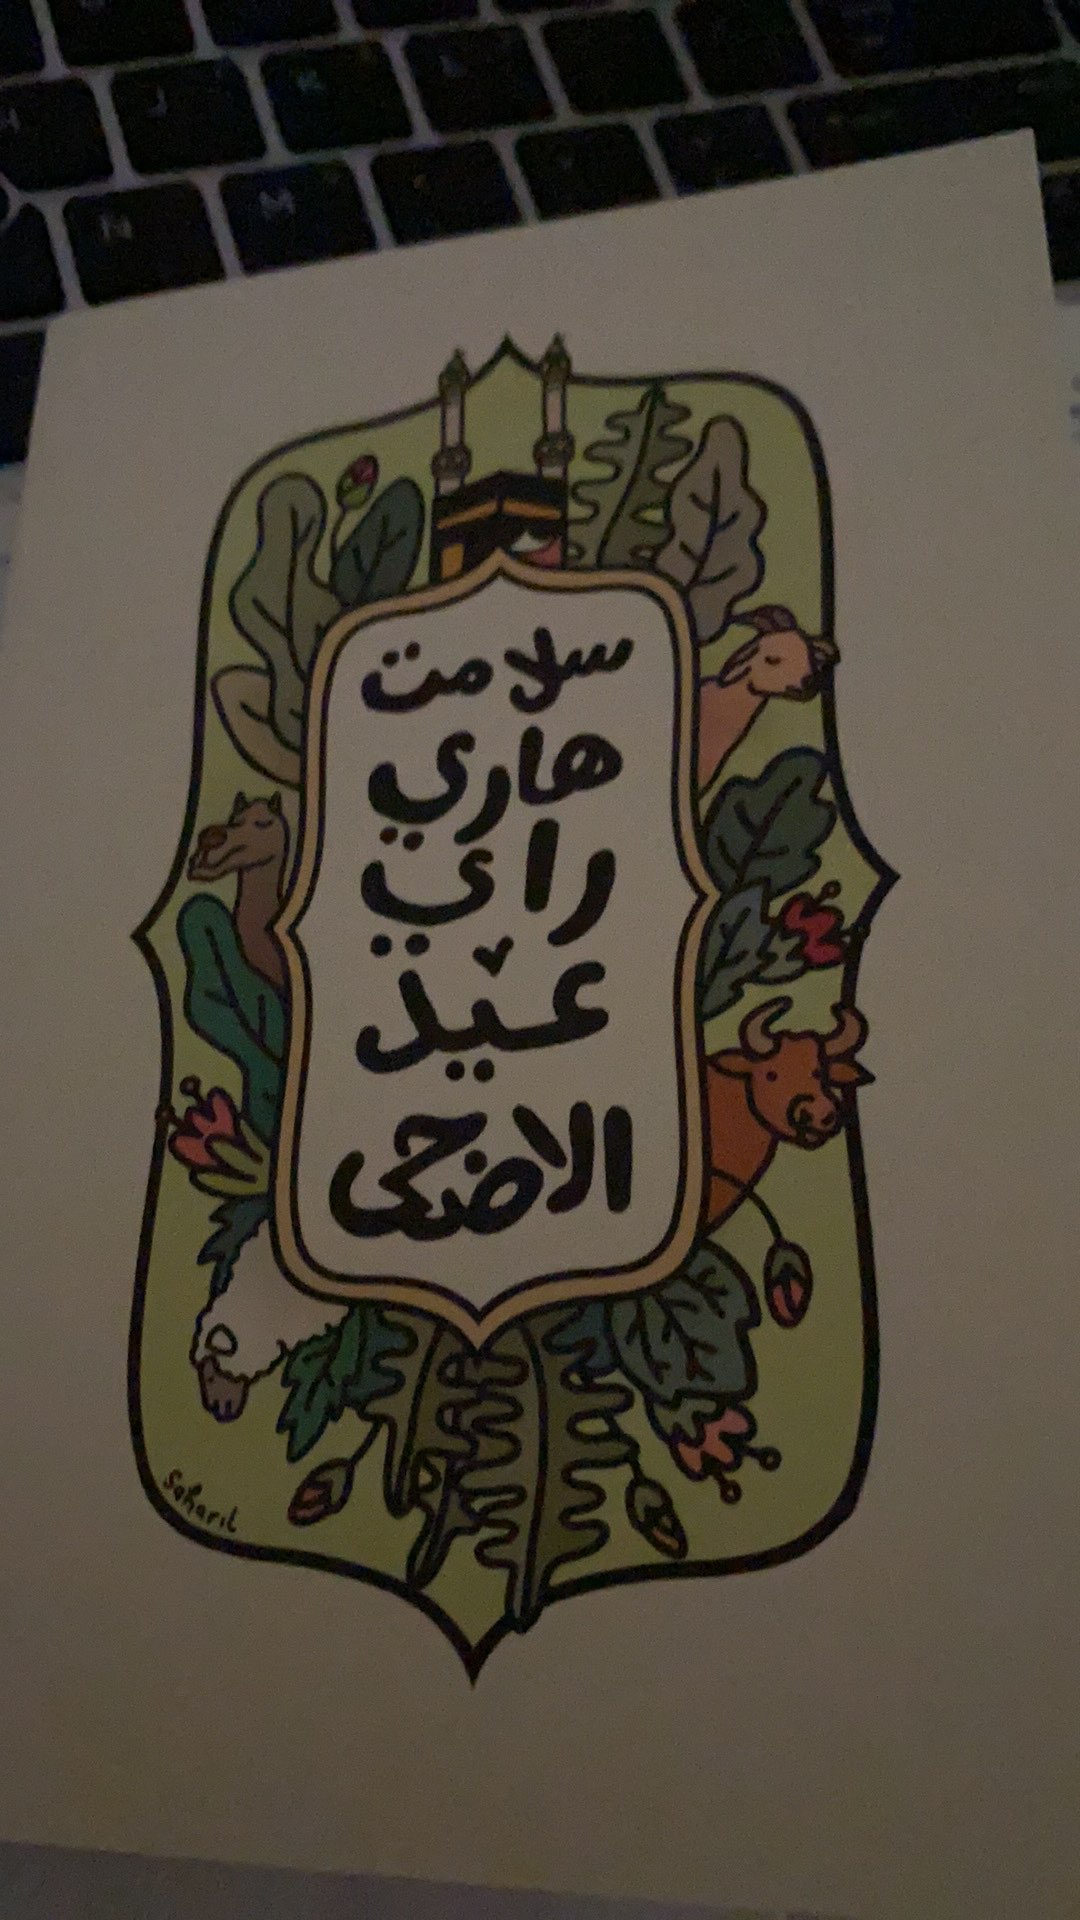 سلامت
هاري
راي
عيد
الاضحى
Saharil
N
M